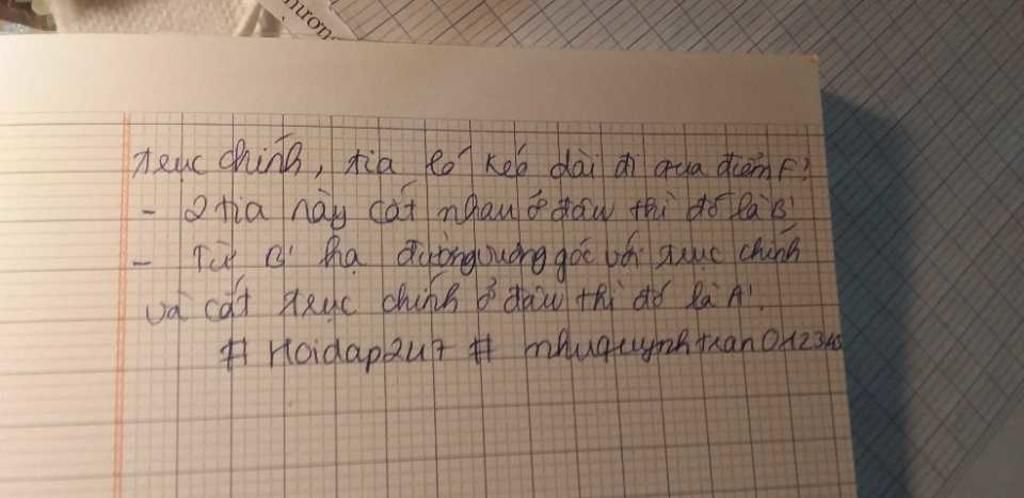 hương
trục chính, tia ló kéo dài đi qua điểm F'
- 2 tia này cắt nhau ở đâu thì đó là B'
- Từ B' hạ đường vuông góc với trục chính
và cắt trục chính ở đâu thì đó là A'.
# Hoidap247 # nhuquynhtran012345